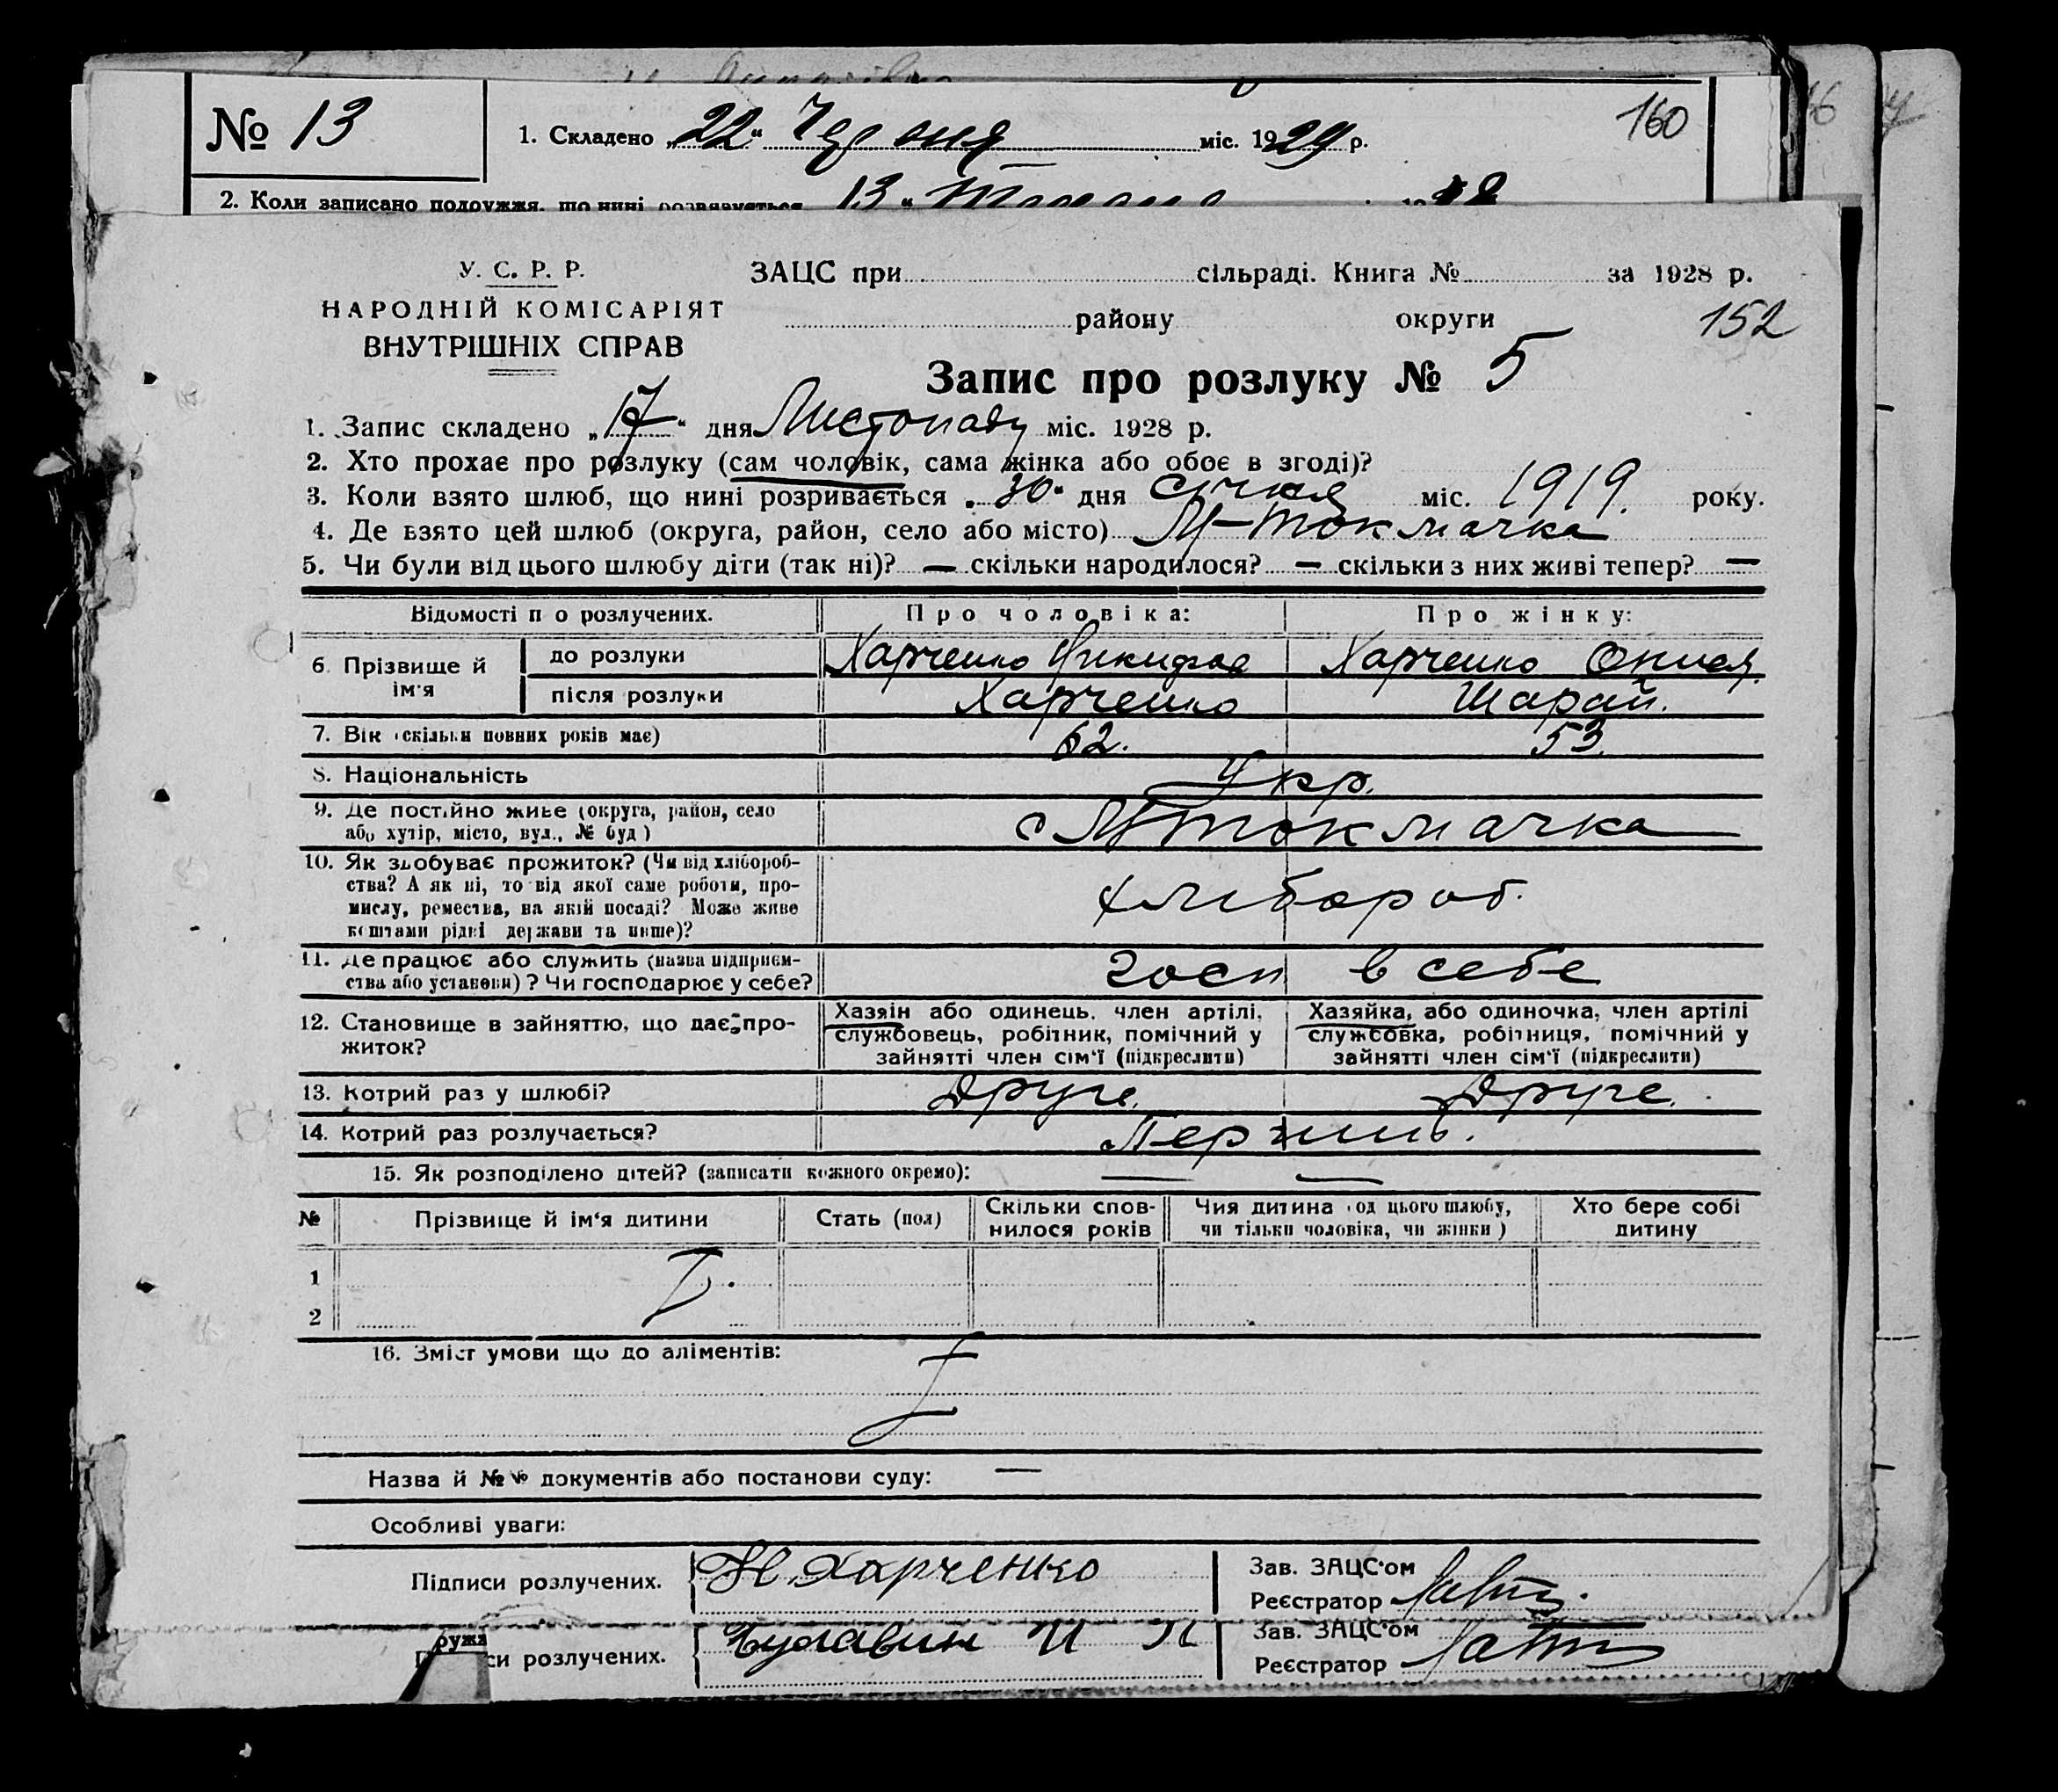 № 13
1. Складено „22“ Червня міс. 1929 р.
160
2. Коли записано подружжя, що нині розвязується 13 “
У. С. Р. Р.
НАРОДНІЙ КОМІСАРІЯТ
ВНУТРІШНІХ СПРАВ
ЗАЦС при сільраді. Книга № за 1928 р.
району округи
152
Запис про розлуку № 5
1. Запис складено „17“ дня Листопаду міс. 1928 р.
2. Хто прохає про розлуку (сам чоловік, сама жінка або обоє в згоді)?
3. Коли взято шлюб, що нині розривається „30“ дня Січня міс. 1919. року.
4. Де взято цей шлюб (округа, район, село або місто) М-Токмачка
5. Чи були від цього шлюбу діти (так ні)? — скільки народилося? — скільки з них живі тепер? —
Відомості п о розлучених. Про чоловіка: Про жінку:
6. Прізвище й ім'я
до розлуки Харченко Харченко
після розлуки Харченко Шарай.
7. Вік (скільки повних років має) 62. 53.
8. Національність Укр.
9. Де постійно живе (округа, район, село
або хутір, місто, вул., № буд) с М-Токмачка
10. Як здобуває прожиток? (Чи від хлібороб-
ства? А як ні, то від якої саме роботи, про-
мислу, ремества, на якій посаді? Може живе
коштами рідні держави та инше)?
хлібороб.
11. Де працює або служить (назва підприєм-
ства або установи)? Чи господарює у себе?
госп в себе
12. Становище в зайняттю, що дає про-
житок?
Хазяін або одинець, член артілі,
службовець, робітник, помічний у
зайнятті член сім'ї (підкреслити)
Хазяйка, або одиночка, член артілі
службовка, робітниця, помічний у
зайнятті член сім'ї (підкреслити)
13. Котрий раз у шлюбі? Друге. Друге.
14. Котрий раз розлучається?
15. Як розподілено дітей? (записати кожного окремо): — —
№ Прізвище й ім'я дитини Стать (пол) Скільки спов-
нилося років Чия дитина (од цього шлюбу,
чи тільки чоловіка, чи жінки) Хто бере собі
дитину
1
2
16. Зміст умови що до аліментів:
Назва й №№ документів або постанови суду: —
Особливі уваги:
Підписи розлучених. Н. Харченко
Зав. ЗАЦС'ом
Реєстратор
Зав. ЗАЦС'ом
си розлучених.
Реєстратор